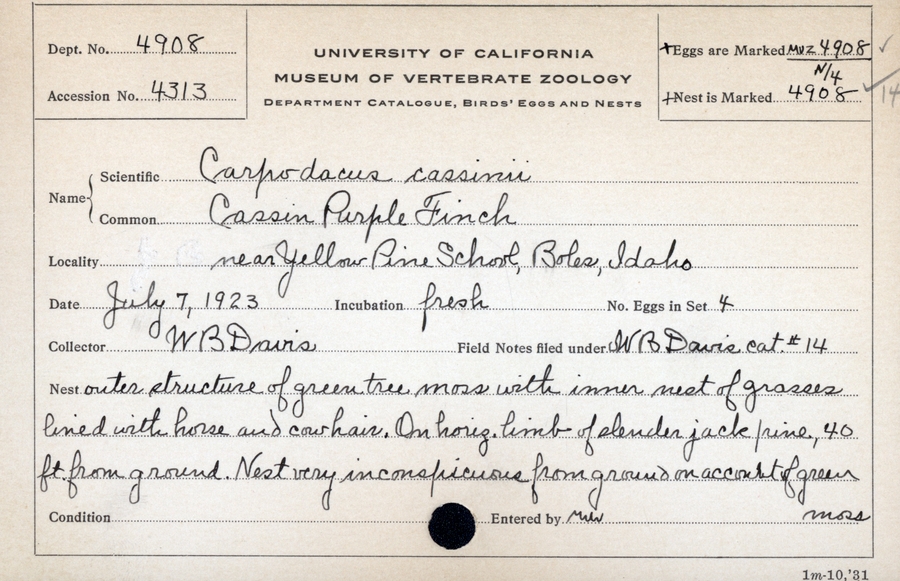 Dept. No. 4908
Accession No. 4313
UNIVERSITY OF CALIFORNIA
MUSEUM OF VERTEBRATE ZOOLOGY
DEPARTMENT CATALOGUE, BIRDS' EGGS AND NESTS
+Eggs are Marked MVZ 4908 ✓
N/4
+Nest is Marked 4908 ✓ 14
Name { Scientific Carpodacus cassinii
Common Cassin Purple Finch
Locality near Yellow Pine School, Boles, Idaho
Date July 7, 1923 Incubation fresh No. Eggs in Set 4
Collector W B Davis Field Notes filed under W B Davis cat. #14
Nest outer structure of green tree moss with inner nest of grasses
lined with horse and cow hair. On horiz. limb of slender jack pine, 40
ft. from ground. Nest very inconspicuous from ground on account of green
moss
Condition Entered by
1m-10,'31